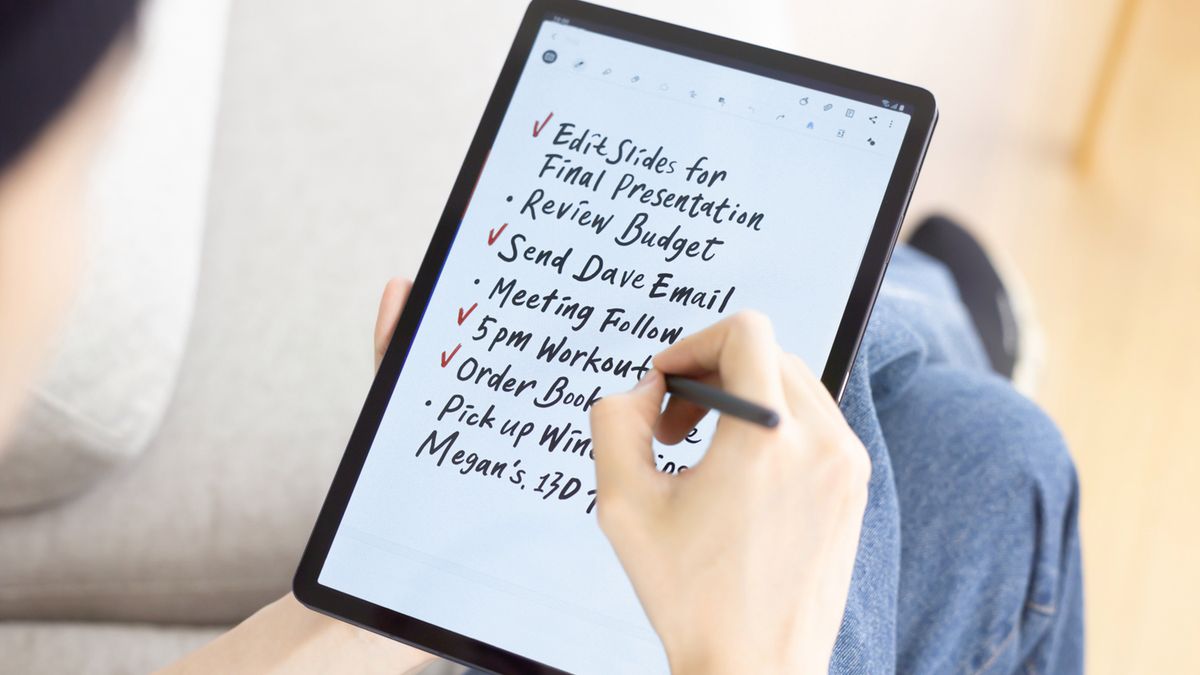 ✓ Edit Slides for
Final Presentation
• Review Budget
✓ Send Dave Email
• Meeting Follow
✓ 5pm Workout
✓ Order Book
• Pick up
Megan's.